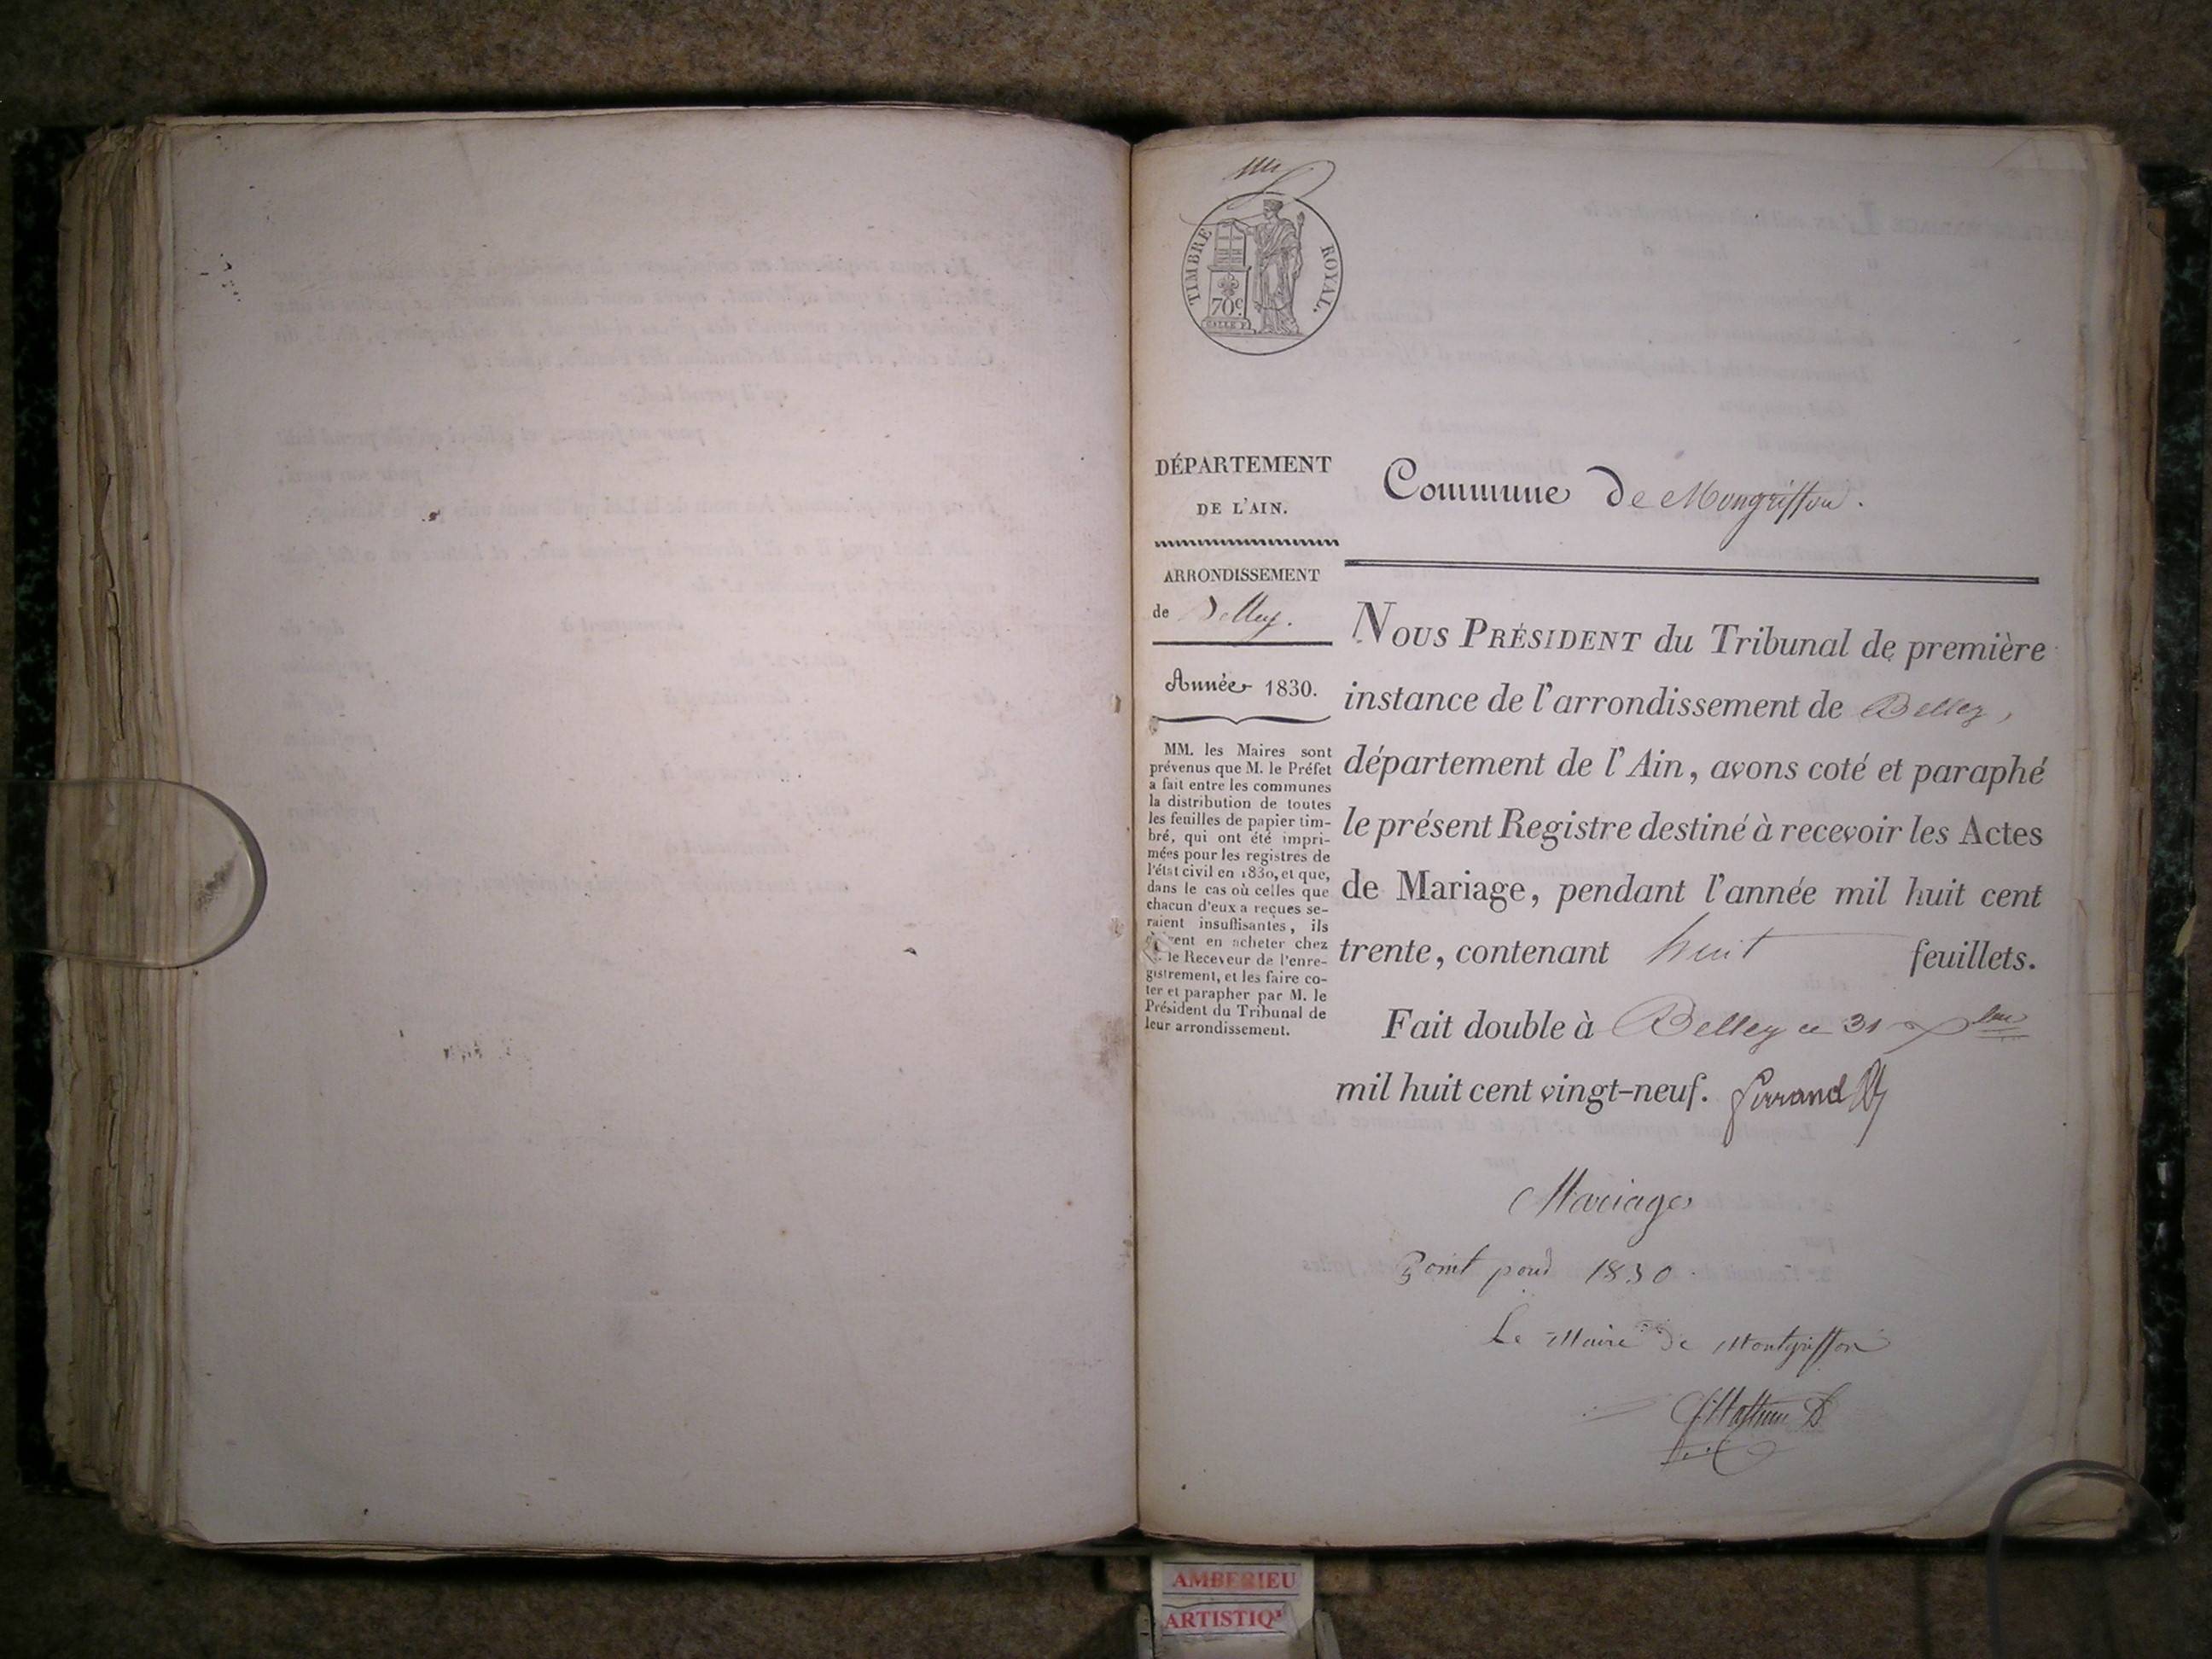 TIMBRE ROYAL.
70c.
DÉPARTEMENT
DE L'AIN.
ARRONDISSEMENT
de Belley.
Année 1830.
MM. les Maires sont
prévenus que M. le Préfet
a fait entre les communes
la distribution de toutes
les feuilles de papier tim-
bré, qui ont été impri-
mées pour les registres de
l'état civil en 1830, et que,
dans le cas où celles que
chacun d'eux a reçues se-
raient insuffisantes, ils
en acheter chez
le Receveur de l'enre-
gistrement, et les faire co-
ter et parapher par M. le
Président du Tribunal de
leur arrondissement.
Commune de Mongriffon.
NOUS PRÉSIDENT du Tribunal de première
instance de l'arrondissement de Belley,
département de l'Ain, avons coté et paraphé
le présent Registre destiné à recevoir les Actes
de Mariage, pendant l'année mil huit cent
trente, contenant huit feuillets.
Fait double à Belley ce 31 Xbre
mil huit cent vingt-neuf. Ferrand
Mariages
Point pour 1830.
Le Maire de Montgriffon
AMBERIEU
ARTISTIQ